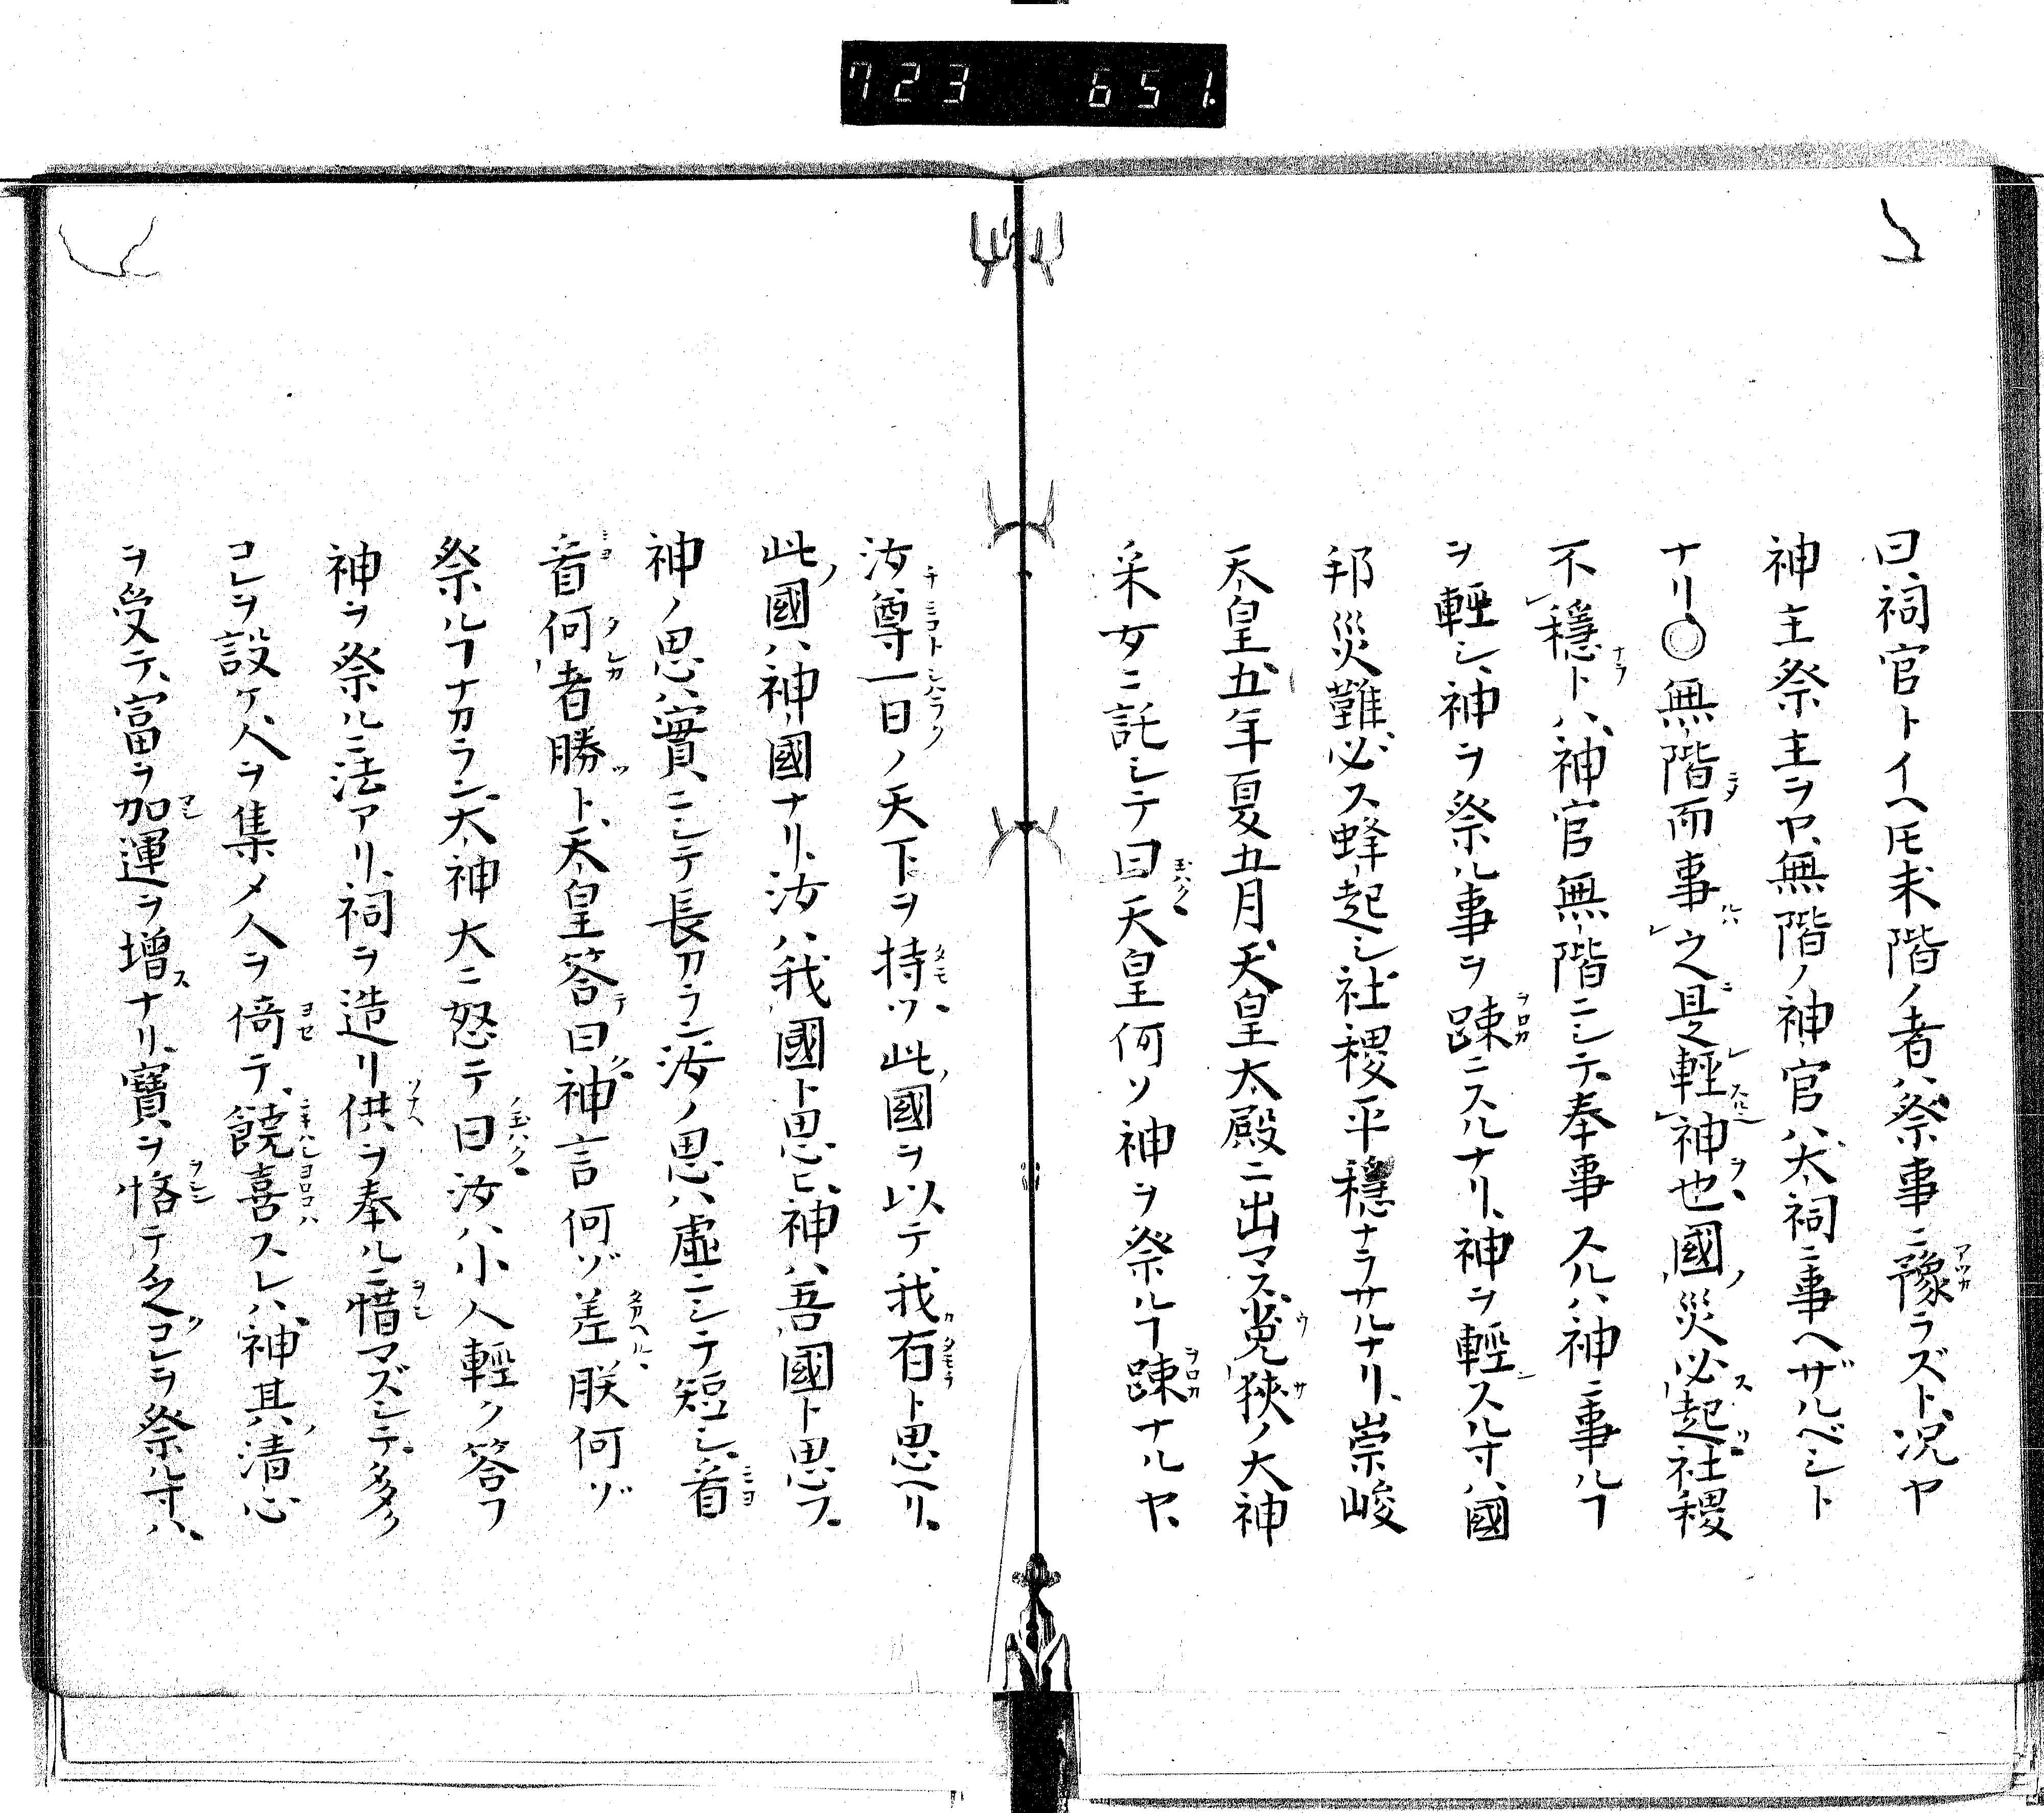 723 651.
曰、祠官トイヘ𪜈末階ノ者ハ祭事ニ豫ラズト、况ヤ
神主祭主ヲヤ、無階ノ神官ハ、大祠ニ事ヘザルベシト
ナリ、◯無階而事之是輕神也國災必起社稷
不穏トハ、神官無階ニシテ、奉事スルハ、神ニ事ルヿ
ヲ輕シ、神ヲ祭ル事ヲ踈ニスルナリ、神ヲ輕スル寸ハ、國
邦災難必ス蜂起シ、社稷平穏ナラサルナリ、崇峻
天皇五年夏五月、天皇大殿ニ出マス、菟狹ノ大神
采女ニ託シテ曰天皇何ソ神ヲ祭ルヿ踈ナルヤ、
汝尊一日ノ天下ヲ持ツ、此國ヲ以テ、我有ト思ヘリ、
此國ハ神國ナリ、汝ハ我國ト思ヒ、神ハ吾國ト思フ、
神ノ思ハ實ニシテ長カラン、汝ノ思ハ虚ニシテ短シ、看
看何者勝ト、天皇答曰神言何ゾ差朕何ゾ
祭ルヿナカラン、大神大ニ怒テ曰汝ハ小人輕ク答フ
神ヲ祭ルニ法アリ、祠ヲ造リ供ヲ奉ルニ惜マズシテ、多ク
コレヲ設ケ、人ヲ集メ人ヲ倚テ、饒喜スレハ、神其ノ清心
ヲ受テ、富ヲ加運ヲ増ナリ、寶ヲ悋テ乏コレヲ祭ル寸ハ、